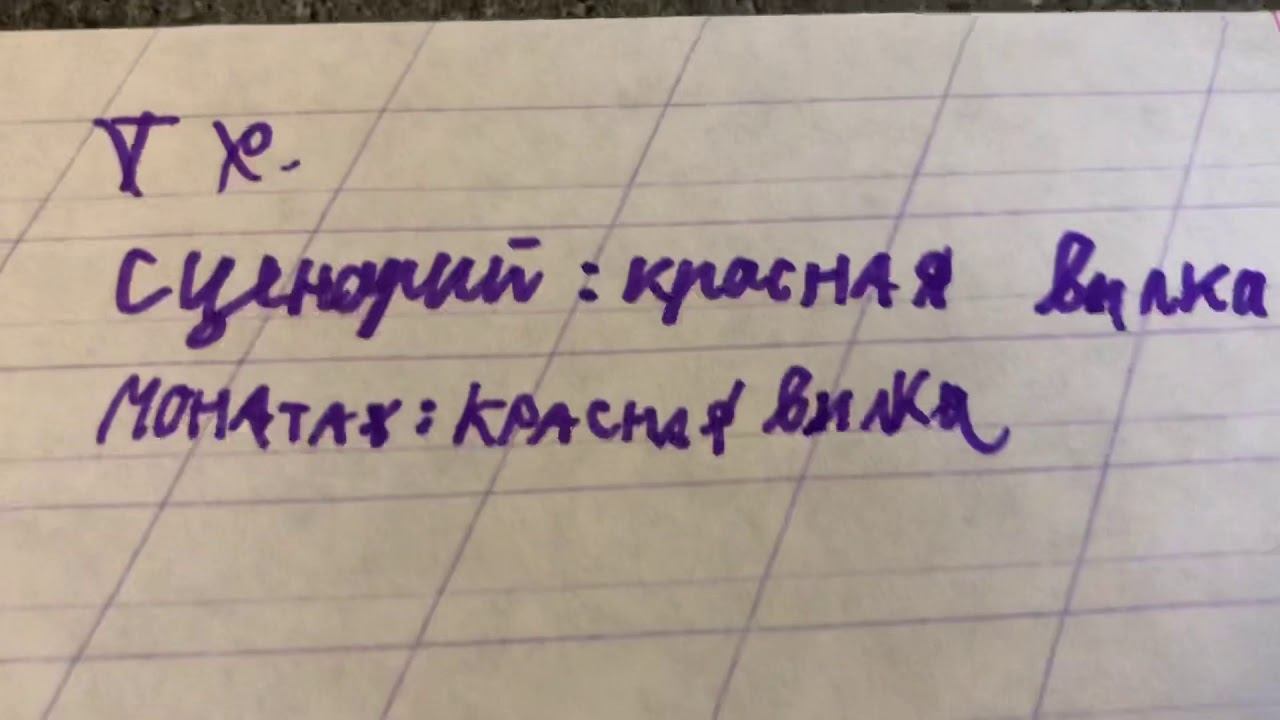 сценарий : красная вилка
МОНАТАЖ : КРАСНАЯ ВИЛКА